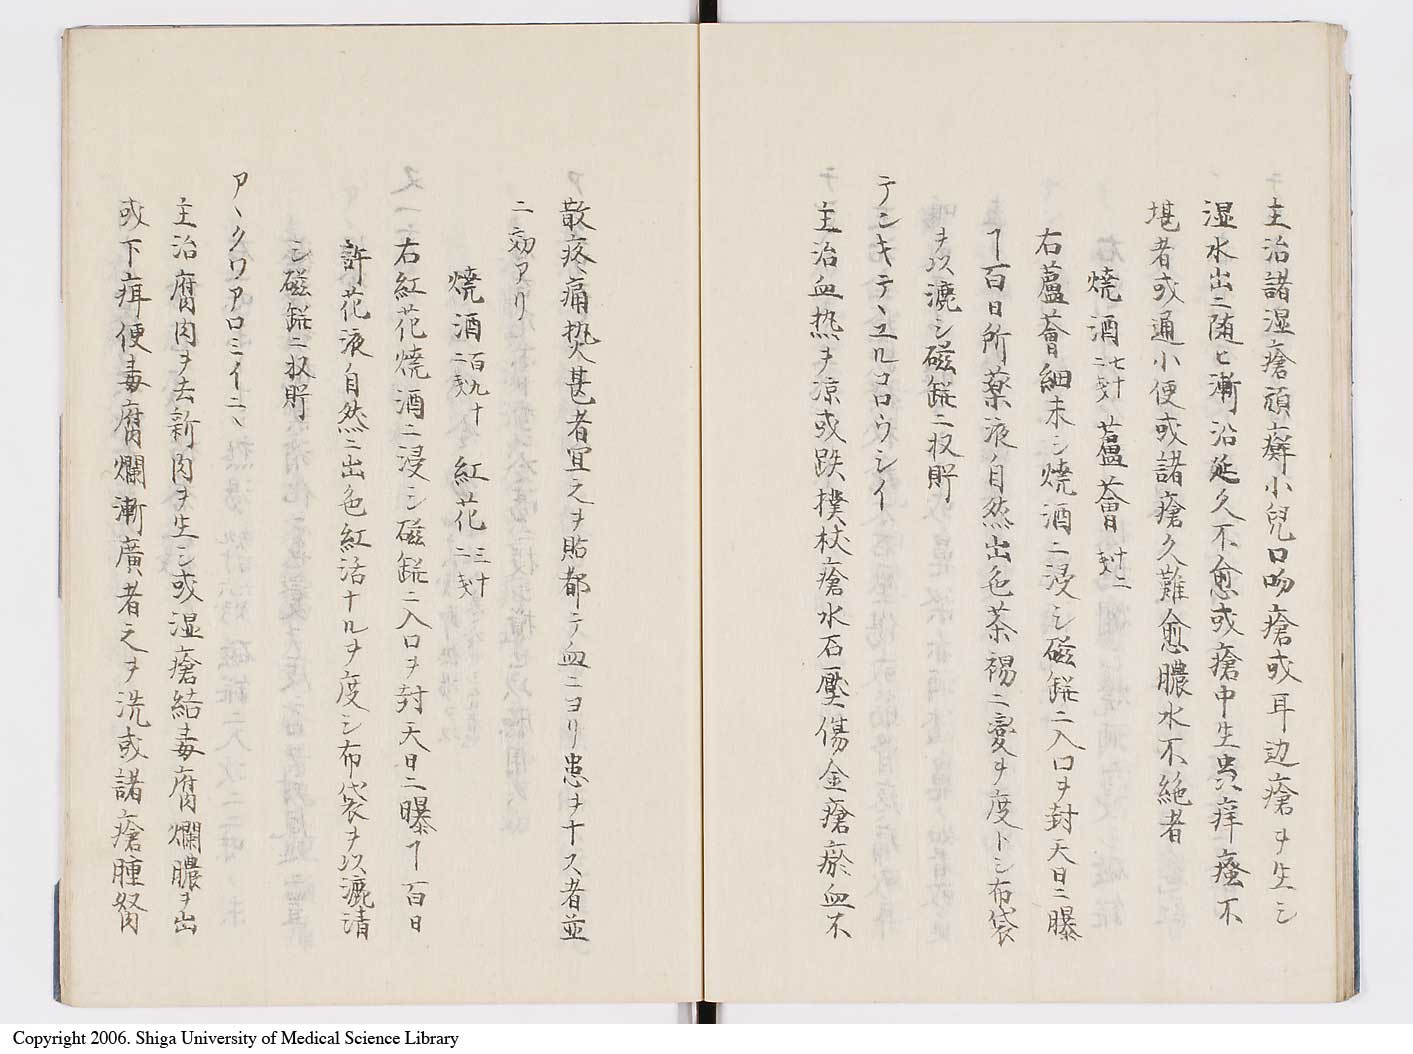 主治諸湿瘡頑癬小兒口吻瘡或耳边瘡ヲ生シ
湿水出ニ随ヒ漸沿延久不愈或瘡中生虫痒瘙不
堪者或通小便或諸瘡久難愈膿水不絶者
燒酒 七十二戔 蘆薈 十二戔
右蘆薈細末シ燒酒ニ浸シ磁鋌ニ入口ヲ封天日ニ曝
ヿ百日所薬液自然出色茶褐ニ変ヲ度トシ布袋
ヲ以漉シ磁鋌ニ収貯
テンキテヽユルコロウシイ
主治血热ヲ凉或跌撲杖瘡水石壓傷金瘡瘀血不
散疼痛㷍甚者宜之ヲ貼都テ血ニヨリ患ヲナス者並
ニ効アリ
燒酒 百九十二戔 紅花 三十二戔
右紅花燒酒ニ浸シ磁鋌ニ入口ヲ封天日ニ曝ヿ百日
許花液自然ニ出色紅活ナルヲ度シ布袋ヲ以漉清
シ磁鋌ニ収貯
アヽクワアロミイニヽ
主治腐肉ヲ去新肉ヲ生シ或湿瘡結毒腐爛膿ヲ出
或下疳便毒腐爛漸廣者之ヲ洗或諸瘡腫胬
Copyright 2006. Shiga University of Medical Science Library